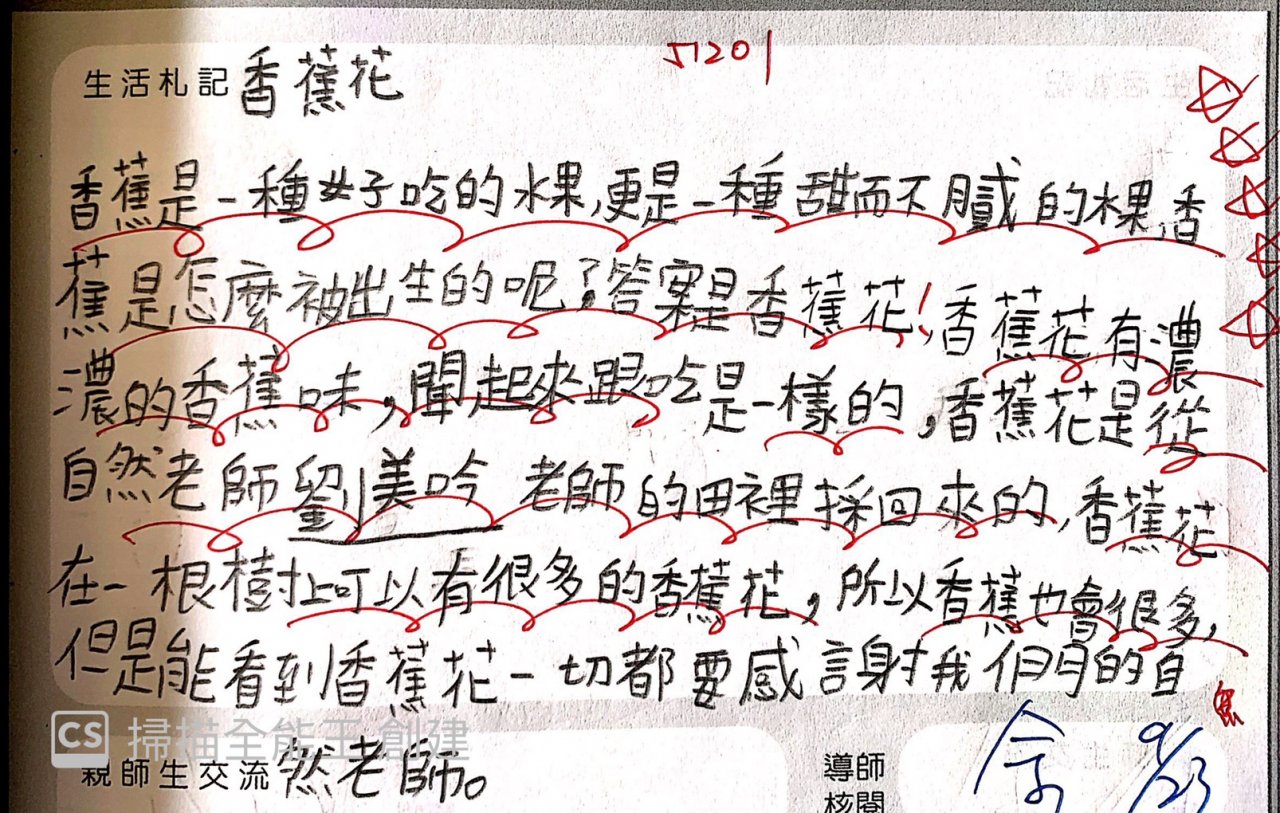 51201
生活札記 香蕉花
香蕉是一種好吃的水果,更是一種甜而不膩的水果,香
蕉是怎麼被出生的呢?答案是香蕉花!,香蕉花有濃
濃的香蕉味,聞起來跟吃是一樣的,香蕉花是從
自然老師劉美吟 老師的田裡採回來的,香蕉花
在一根樹上可以有很多的香蕉花,所以香蕉也會很多,
但是能看到香蕉花一切都要感謝我們的自
然老師。
親師生交流
導師
核閱
9/23
CS 掃描全能王 創建